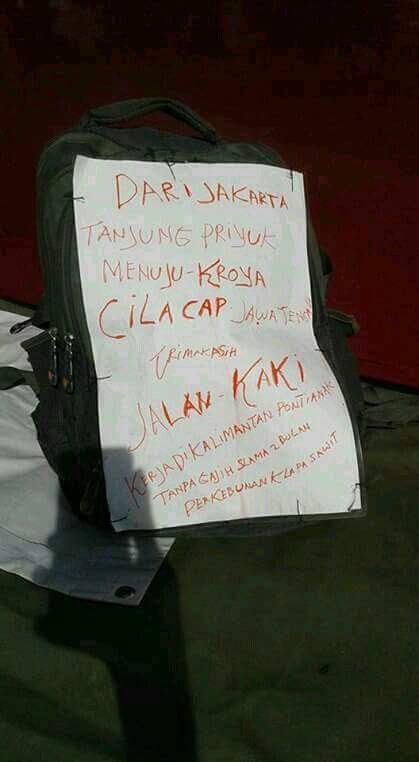 DARI JAKARTA
TANJUNG PRIYUK
MENUJU-KROYA
CILACAP JAWA TENGAH
TRIMAKASIH
JALAN-KAKI
KERJA DI KALIMANTAN PONTIANAK
TANPA GAJIH SLAMA 2 BULAN
PERKEBUNAN KLAPA SAWIT